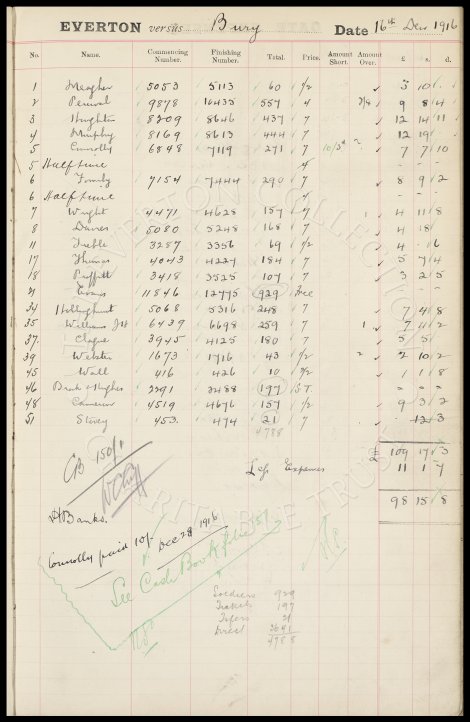 EVERTON versus Bury Date 16th Dec 1916
No. Name. Commencing Number. Finishing Number. Total. Price. Amount Short. Amount Over. £ s. d.
1 Meagher 5053 5113 60 1/2 3 10 -
2 Percival 9878 10435 557 4 2/4 9 8 4
3 Hughton 8209 8646 437 7 12 14 11
4 Murphy 8169 8613 444 7 12 19 -
5 Connolly 6848 7119 271 7 10/3d 7 7 10
5 Half time 4 - - -
6 Formby 7154 7444 290 7 8 9 2
6 Half time 4 - - -
7 Wright 4471 4628 157 7 1 4 11 8
8 Davies 5080 5248 168 7 4 18 -
11 Treble 3287 3356 69 1/2 4 - 6
17 Thomas 4043 4227 184 7 5 7 4
18 Proffitt 3418 3525 107 7 3 2 5
21 Evans 11846 12775 929 Free
34 Hollinghurst 5068 5316 248 7 7 4 8
35 Williams JH 6439 6698 259 7 1 7 11 2
37 Clague 3945 4125 180 7 5 5 -
39 Webster 1673 1716 43 1/2 2 10 2
45 Wall 416 426 10 1 1 8
46 Hughes 2291 2488 197 S.T. - - -
48 Cameron 4519 4676 157 1/2 9 3 2
51 Storey 453 474 21 7 12 3
4788
£ 109 17 3
CB 150/1 Less Expenses 11 1 7
98 15 8
Banks.
Connolly paid 10/- Dec 28 1916
See Cash Book folio 151
Soldiers 929
Tickets 197
21
Direct 3641
4788
EVERTON COLLECTION
CHARITABLE TRUST